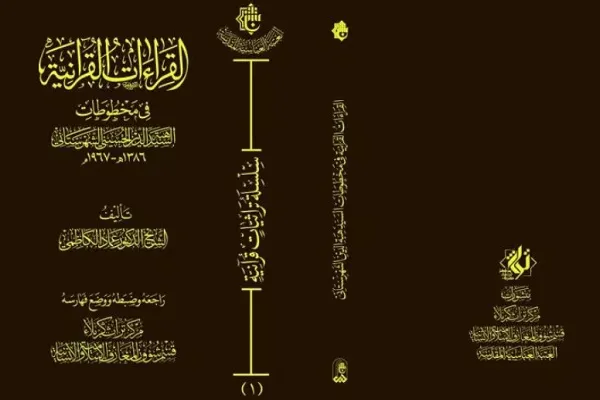 القراءات القرآنية
في مخطوطات
السيد هبة الدين الحسيني الشهرستاني
١٣٨٦هـ - ١٩٦٧م
تأليف
الشيخ الدكتور عماد الكاظمي
راجعه وضبطه ووضع فهارسه
مركز تراث كربلاء
قسم شؤون المعارف الإسلامية والإنسانية
العتبة العباسية المقدسة
سلسلة تراثيات قرآنية
(١)
القراءات القرآنية في مخطوطات السيد هبة الدين الشهرستاني
منشورات
مركز تراث كربلاء
قسم شؤون المعارف الإسلامية والإنسانية
العتبة العباسية المقدسة